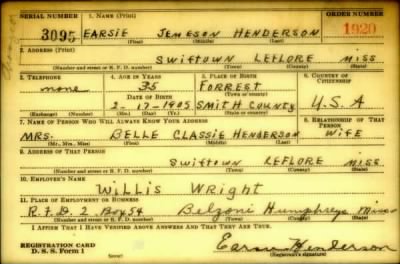 SERIAL NUMBER 1. NAME (Print) ORDER NUMBER
3095 EARSIE JEMESON HENDERSON 1920
(First) (Middle) (Last)
2. ADDRESS (Print)
SWIFTOWN LEFLORE MISS
(Number and street or R. F. D. number) (Town) (County) (State)
3. TELEPHONE 4. AGE IN YEARS 5. PLACE OF BIRTH 6. COUNTRY OF CITIZENSHIP
none 35 FORREST
(Town or county)
DATE OF BIRTH
2-17-1905 SMITH COUNTY U.S.A
(Exchange) (Number) (Mo.) (Day) (Yr.) (State or country)
7. NAME OF PERSON WHO WILL ALWAYS KNOW YOUR ADDRESS 8. RELATIONSHIP OF THAT PERSON
MRS. BELLE CLASSIE HENDERSON WIFE
(Mr., Mrs., Miss) (First) (Middle) (Last)
9. ADDRESS OF THAT PERSON
SWIFTOWN LEFLORE MISS.
(Number and street or R. F. D. number) (Town) (County) (State)
10. EMPLOYER'S NAME
WILLIS WRIGHT
11. PLACE OF EMPLOYMENT OR BUSINESS
R.F.D. 2 Box 54 Belzoni Humphreys Miss
(Number and street or R. F. D. number) (Town) (County) (State)
I AFFIRM THAT I HAVE VERIFIED ABOVE ANSWERS AND THAT THEY ARE TRUE.
REGISTRATION CARD
D. S. S. Form 1 Henderson
(Registrant's signature)